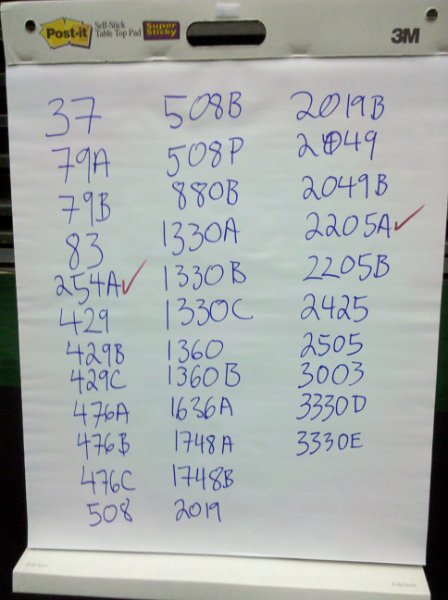 Post-it
Self-Stick
Table Top Pad
Super
Sticky
3M
37
79A
79B
83
254A✓
429
429B
429C
476A
476B
476C
508
508B
508P
880B
1330A
1330B
1330C
1360
1360B
1636A
1748A
1748B
2019
2019B
2049
2049B
2205A✓
2205B
2425
2505
3003
3330D
3330E